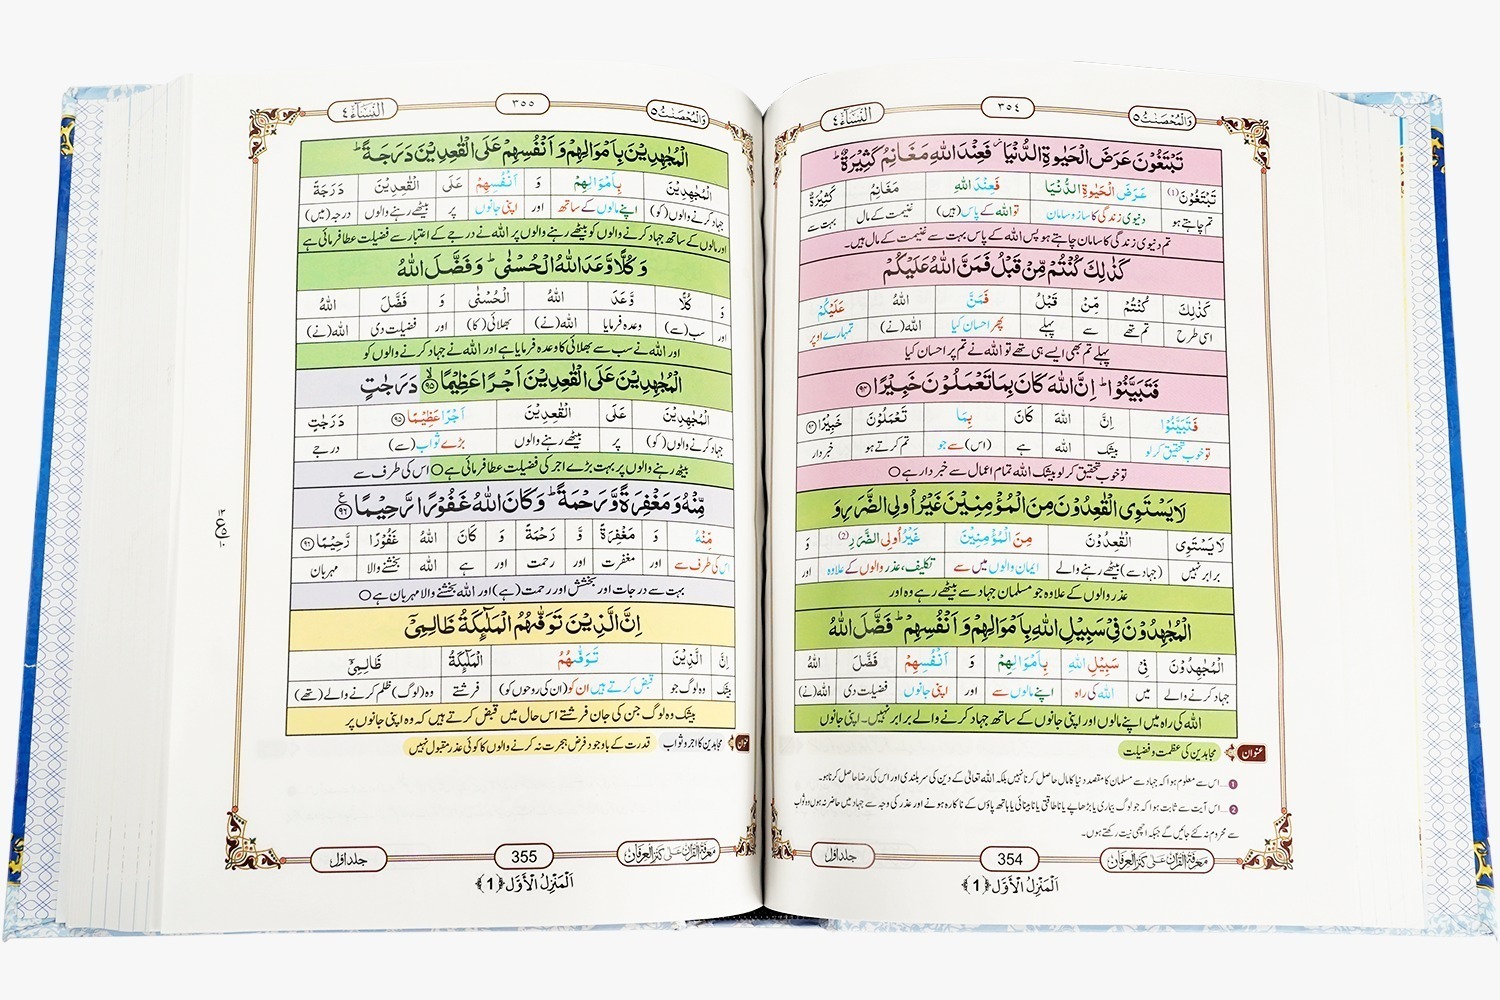 وَالْمُحْصَنٰتُ ٥
٣٥٤
اَلنِّسَآء ٤
تَبْتَغُوْنَ عَرَضَ الْحَيٰوةِ الدُّنْيَا ۫ فَعِنْدَ اللّٰهِ مَغَانِمُ كَثِيْرَةٌ ؕ
تَبْتَغُوْنَ (1) عَرَضَ الْحَيٰوةِ الدُّنْيَا فَعِنْدَ اللّٰهِ مَغَانِمُ كَثِيْرَةٌ
تم چاہتے ہو دنیوی زندگی کا ساز و سامان تو اللہ کے پاس (ہیں) غنیمت کے مال بہت سے
تم دنیوی زندگی کا سامان چاہتے ہو پس اللہ کے پاس بہت سے غنیمت کے مال ہیں۔
كَذٰلِكَ كُنْتُمْ مِّنْ قَبْلُ فَمَنَّ اللّٰهُ عَلَيْكُمْ
كَذٰلِكَ كُنْتُمْ مِّنْ قَبْلُ فَمَنَّ اللّٰهُ عَلَيْكُمْ
اسی طرح تم تھے سے پہلے پھر احسان کیا اللہ (نے) تمہارے اوپر
پہلے تم بھی ایسے ہی تھے تو اللہ نے تم پر احسان کیا
فَتَبَيَّنُوْا ؕ اِنَّ اللّٰهَ كَانَ بِمَا تَعْمَلُوْنَ خَبِيْرًا ﴿۹۴﴾
فَتَبَيَّنُوْا اِنَّ اللّٰهَ كَانَ بِمَا تَعْمَلُوْنَ خَبِيْرًا ﴿۹۴﴾
تو خوب تحقیق کر لو بیشک اللہ ہے (اس) سے جو تم کرتے ہو خبردار
تو خوب تحقیق کر لو بیشک اللہ تمام اعمال سے خبردار ہے ○
لَا يَسْتَوِى الْقٰعِدُوْنَ مِنَ الْمُؤْمِنِيْنَ غَيْرُ اُولِى الضَّرَرِ وَ
لَا يَسْتَوِى الْقٰعِدُوْنَ مِنَ الْمُؤْمِنِيْنَ غَيْرُ اُولِى الضَّرَرِ (2) وَ
برابر نہیں (جہاد سے) بیٹھے رہنے والے ایمان والوں میں سے تکلیف، عذر والوں کے علاوہ اور
عذر والوں کے علاوہ جو مسلمان جہاد سے بیٹھے رہے وہ اور
الْمُجٰهِدُوْنَ فِىْ سَبِيْلِ اللّٰهِ بِاَمْوَالِهِمْ وَ اَنْفُسِهِمْ ؕ فَضَّلَ اللّٰهُ
الْمُجٰهِدُوْنَ فِىْ سَبِيْلِ اللّٰهِ بِاَمْوَالِهِمْ وَ اَنْفُسِهِمْ فَضَّلَ اللّٰهُ
جہاد کرنے والے میں اللہ کی راہ اپنے مالوں سے اور اپنی جانوں فضیلت دی اللہ (نے)
اللہ کی راہ میں اپنے مالوں اور اپنی جانوں کے ساتھ جہاد کرنے والے برابر نہیں۔ اپنی جانوں
عنوان مجاہدین کی عظمت و فضیلت
1 ...اس سے معلوم ہوا کہ جہاد سے مسلمان کا مقصد دنیا کا مال حاصل کرنا نہیں بلکہ اللہ تعالیٰ کے دین کی سربلندی اور اس کی رضا حاصل کرنا ہو۔
2 ...اس آیت سے ثابت ہوا کہ جو لوگ بیماری یا بڑھاپے یا ناطاقتی یا نابینائی یا ہاتھ پاؤں کے ناکارہ ہونے اور عذر کی وجہ سے جہاد میں حاضر نہ ہوں وہ ثواب
سے محروم نہ کئے جائیں گے جبکہ اچھی نیت رکھتے ہوں۔
معرفۃ القرآن علی کنز العرفان
354
جلد اوّل
اَلْمَنْزِلُ الْاَوَّل ﴿1﴾
وَالْمُحْصَنٰتُ ٥
٣٥٥
اَلنِّسَآء ٤
الْمُجٰهِدِيْنَ بِاَمْوَالِهِمْ وَ اَنْفُسِهِمْ عَلَى الْقٰعِدِيْنَ دَرَجَةً ؕ
الْمُجٰهِدِيْنَ بِاَمْوَالِهِمْ وَ اَنْفُسِهِمْ عَلَى الْقٰعِدِيْنَ دَرَجَةً
جہاد کرنے والوں (کو) اپنے مالوں کے ساتھ اور اپنی جانوں پر بیٹھے رہنے والوں درجہ (میں)
اور مالوں کے ساتھ جہاد کرنے والوں کو بیٹھے رہنے والوں پر اللہ نے درجے کے اعتبار سے فضیلت عطا فرمائی ہے
وَ كُلًّا وَّعَدَ اللّٰهُ الْحُسْنٰى ؕ وَ فَضَّلَ اللّٰهُ
وَ كُلًّا وَّعَدَ اللّٰهُ الْحُسْنٰى وَ فَضَّلَ اللّٰهُ
اور سب (سے) وعدہ فرمایا اللہ (نے) بھلائی (کا) اور فضیلت دی اللہ (نے)
اور اللہ نے سب سے بھلائی کا وعدہ فرمایا ہے اور اللہ نے جہاد کرنے والوں کو
الْمُجٰهِدِيْنَ عَلَى الْقٰعِدِيْنَ اَجْرًا عَظِيْمًا ﴿ۙ۹۵﴾ دَرَجٰتٍ
الْمُجٰهِدِيْنَ عَلَى الْقٰعِدِيْنَ اَجْرًا عَظِيْمًا ﴿۹۵﴾ دَرَجٰتٍ
جہاد کرنے والوں (کو) پر بیٹھے رہنے والوں بڑے ثواب (سے) درجے
بیٹھ رہنے والوں پر بہت بڑے اجر کی فضیلت عطا فرمائی ہے ○ اس کی طرف سے
مِّنْهُ وَ مَغْفِرَةً وَّ رَحْمَةً ؕ وَ كَانَ اللّٰهُ غَفُوْرًا رَّحِيْمًا ﴿۹۶﴾ ع
مِّنْهُ وَ مَغْفِرَةً وَّ رَحْمَةً وَ كَانَ اللّٰهُ غَفُوْرًا رَّحِيْمًا ﴿۹۶﴾
اس کی طرف سے اور مغفرت اور رحمت اور ہے اللہ بخشنے والا مہربان
بہت سے درجات اور بخشش اور رحمت (ہے) اور اللہ بخشنے والا مہربان ہے ○
اِنَّ الَّذِيْنَ تَوَفّٰىهُمُ الْمَلٰٓئِكَةُ ظَالِمِىْۤ
اِنَّ الَّذِيْنَ تَوَفّٰىهُمُ الْمَلٰٓئِكَةُ ظَالِمِىْۤ
بیشک وہ لوگ جو قبض کرتے ہیں ان کو (ان کی روحوں کو) فرشتے وہ (لوگ) ظلم کرنے والے (تھے)
بیشک وہ لوگ جن کی جان فرشتے اس حال میں قبض کرتے ہیں کہ وہ اپنی جانوں پر
عنوان مجاہدین کا اجر و ثواب قدرت کے باوجود فرض ہجرت نہ کرنے والوں کا کوئی عذر مقبول نہیں
معرفۃ القرآن علی کنز العرفان
355
جلد اوّل
اَلْمَنْزِلُ الْاَوَّل ﴿1﴾